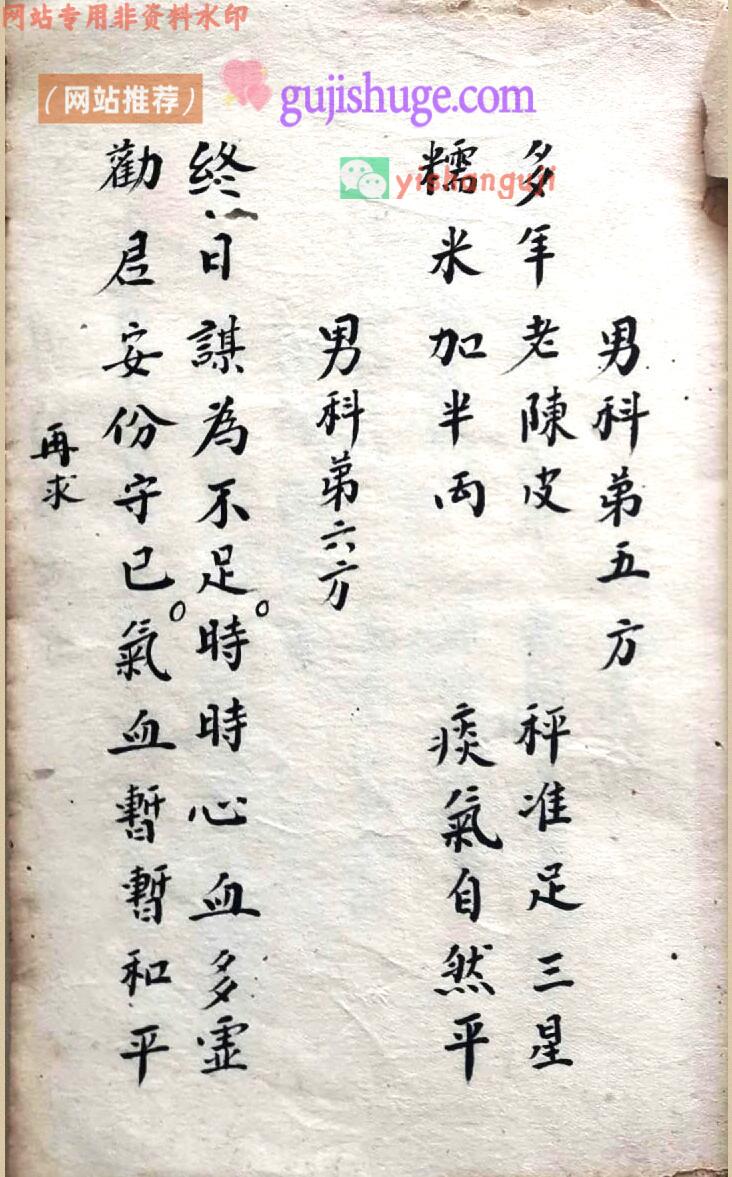 网站专用非资料水印
（网站推荐）
gujishuge.com
yishanguji
男科第五方
多年老陳皮 秤准足三星
糯米加半両 痰氣自然平
男科第六方
終日謀為不足。時時心血多虛
勸君安份守已。氣血暫暫和平
再求